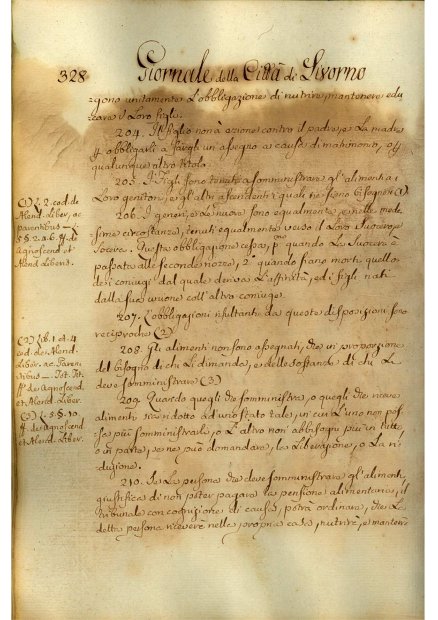 328 Giornale della Città di Livorno
gono unitamente l'obbligazione di nutrire, mantenere edu
care i Loro figli.
204. Il figlio non à azione contro il padre, e La madre
obbligarli a fargli un assegno a causa di matrimonio, o
qualunque altro titolo.
205. I figli sono tenuti a somministrare gl'alimenti a i
Loro genitori, e gl'altri ascendenti i quali ne siano bisognosi (1)
206. I generi, e Le nuore sono equalmente, e nelle mede
sime circostanze, tenuti equalmente verso il Loro suocero, e
suocera: Questa obbligazione cessa, p.° quando La suocera è
passata alle seconde nozze, 2.° quando siano morti quello
de i coniugi dal quale deriva L'affinità, ed i figli nati
dalla sua unione coll'altro coniuge.
207. L'obbligazioni risultanti da queste disposizioni sono
reciproche (2)
208. Gli alimenti non sono assegnati, che in proporzione
del bisogno di chi Li dimanda, e delle sostanze di chi Li
deve somministrare (3)
209. Quando quegli che somministra, o quegli che riceve
alimenti è ridotto ad uno stato tale, in cui L'uno non pos
sa più somministrarli, o L'altro non abbisogni più in tutto
o in parte, se ne può domandare La Liberazione, o La ri
duzione.
210. Se La persona che deve somministrare gl'alimenti,
giustifica di non poter pagare La pensione alimentaria, il
tribunale con cognizione di causa, potrà ordinare, che La
detta persona riceverà nella propria casa, nutrirà, e manterrà
(1) L. 2. cod. de
Alend. Liber. ac
parentibus
§§ 2. a 6. ff. de
agnoscend. et
Alend. Liberis.
(2) Lib. 1. et 4
cod. de Alend.
Liber. ac Paren
tibus — Tot. Tit.
ff. de Agnoscend.
et Alend. Liber.
(3) L. 5. § 10.
ff. de agnoscend.
et Alend. Liber.